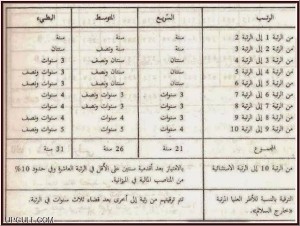 الرتب السريع المتوسط البطيء
من الرتبة 1 إلى الرتبة 2 سنة سنة سنة
من الرتبة 2 إلى الرتبة 3 سنة سنة ونصف سنتان
من الرتبة 3 إلى الرتبة 4 سنتان سنتان ونصف 3 سنوات
من الرتبة 4 إلى الرتبة 5 سنتان سنتان ونصف 3 سنوات ونصف
من الرتبة 5 إلى الرتبة 6 سنتان سنتان ونصف 3 سنوات ونصف
من الرتبة 6 إلى الرتبة 7 3 سنوات 3 سنوات ونصف 4 سنوات
من الرتبة 7 إلى الرتبة 8 3 سنوات 3 سنوات ونصف 4 سنوات
من الرتبة 8 إلى الرتبة 9 3 سنوات 4 سنوات 4 سنوات ونصف
من الرتبة 9 إلى الرتبة 10 4 سنوات 5 سنوات 5 سنوات ونصف
المجموع 21 سنة 26 سنة 31 سنة
من الرتبة 10 إلى الرتبة الاستثنائية
بالاختيار بعد أقدمية سنتين على الأقل في الرتبة العاشرة وفي حدود 10%
من المناصب المالية في الميزانية.
الترقية بالنسبة للأطر العليا المرتبة
«خارج السلالم»
تتم ترقيتهم من رتبة إلى أخرى بعد قضاء ثلاث سنوات في الرتبة.